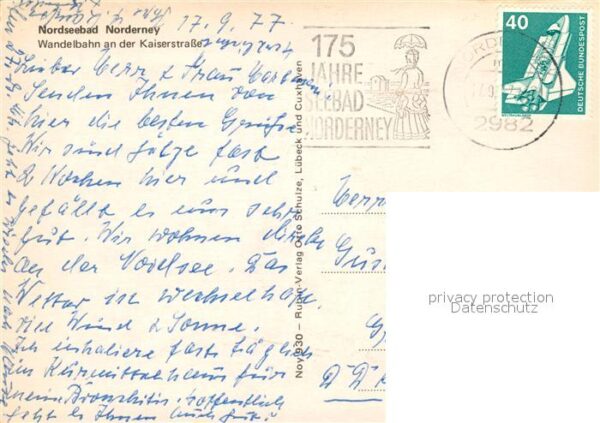 Nordseebad Norderney
Wandelbahn an der Kaiserstraße
17.9.77
Lieber Herr & Frau
Senden Ihnen von
hier die besten Grüße
Wir sind jetzt fast
2 Wochen hier und
gefällt es uns sehr
gut. Wir wohnen direkt
an der Nordsee. Das
Wetter ist wechselhaft
viel Wind & Sonne.
Ich inhaliere fast täglich
im Kurmittelhaus für
meine Bronchitis. Hoffentlich
geht es Ihnen auch gut!
Noy 930 – Rubin-Verlag Otto Schulze, Lübeck und Cuxhaven
175
JAHRE
SEEBAD
NORDERNEY
2982
40
DEUTSCHE BUNDESPOST
Herrn
privacy protection
Datenschutz